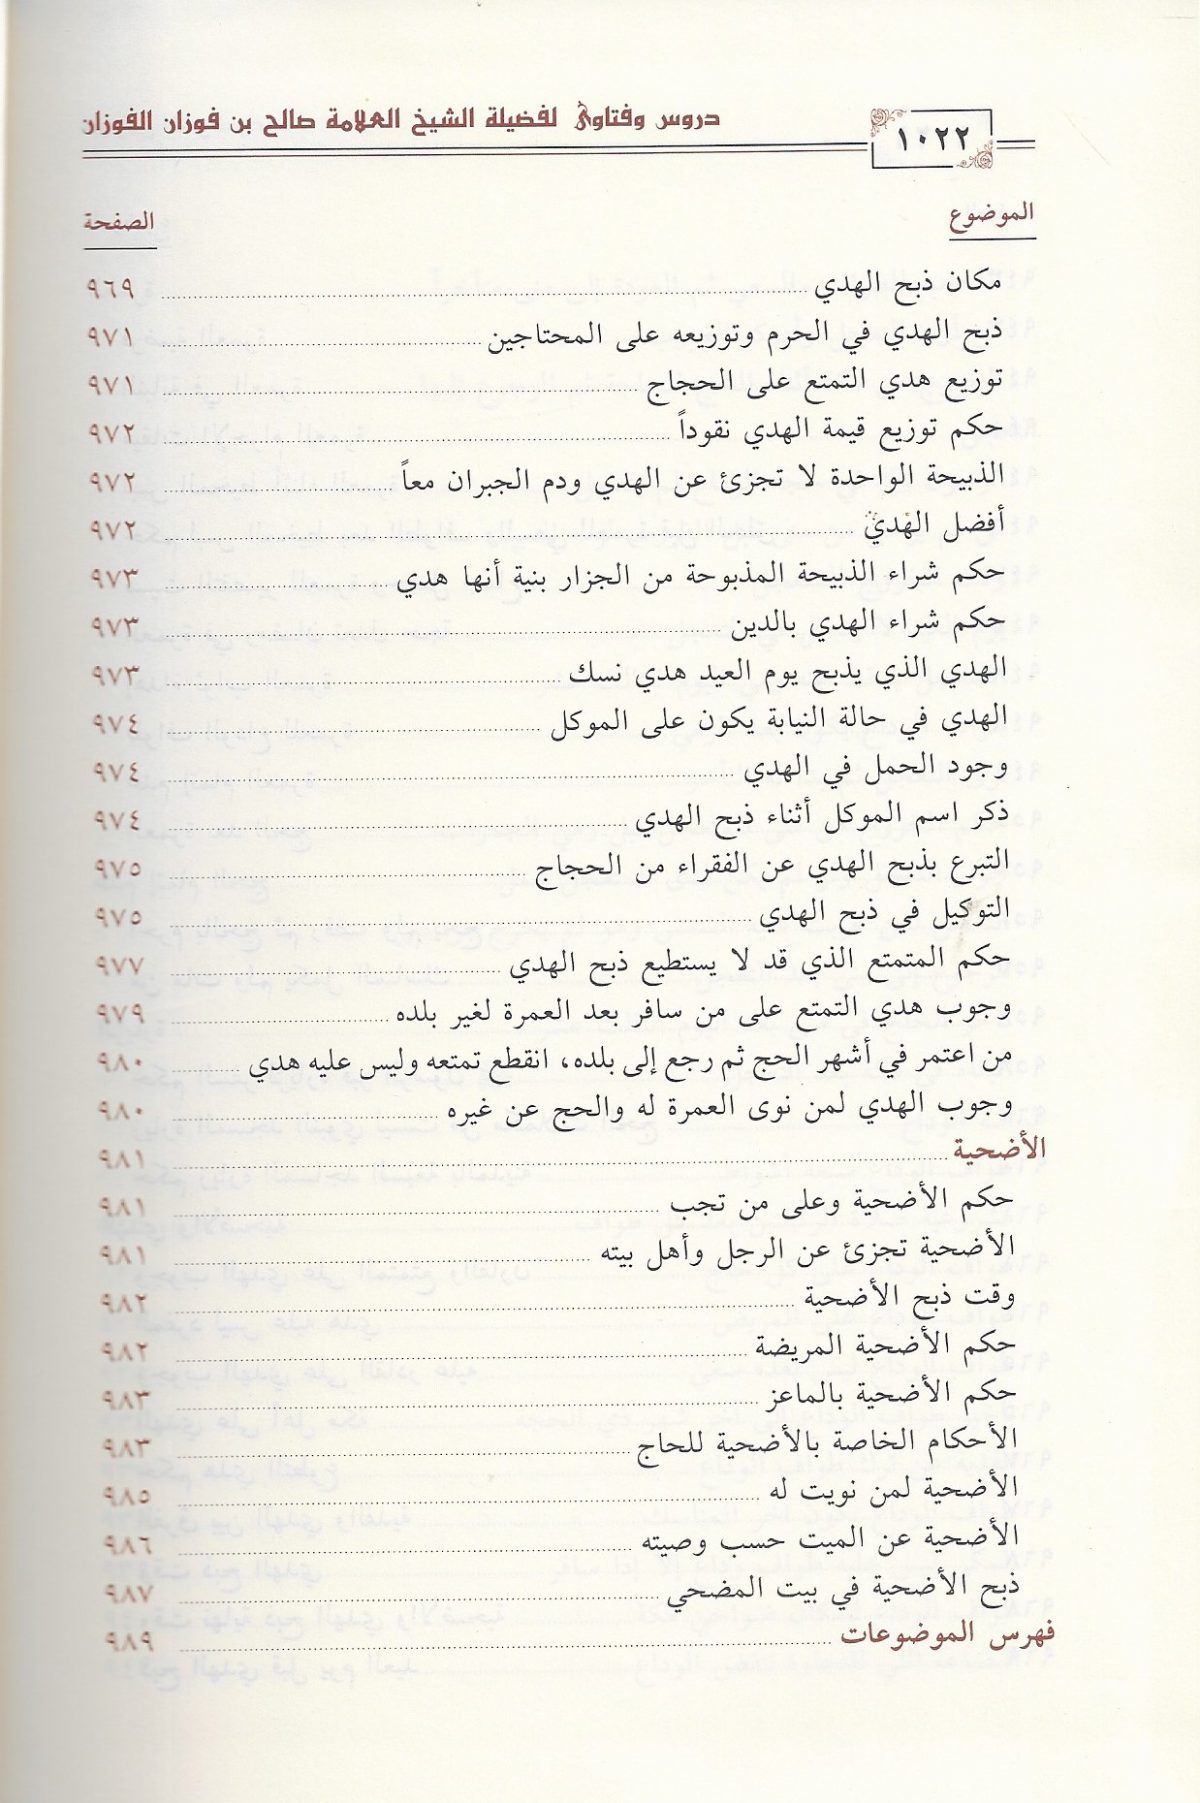 ١٠٢٢
دروس وفتاوى لفضيلة الشيخ العلامة صالح بن فوزان الفوزان
الموضوع الصفحة
مكان ذبح الهدي ٩٦٩
ذبح الهدي في الحرم وتوزيعه على المحتاجين ٩٧١
توزيع هدي التمتع على الحجاج ٩٧١
حكم توزيع قيمة الهدي نقوداً ٩٧٢
الذبيحة الواحدة لا تجزئ عن الهدي ودم الجبران معاً ٩٧٢
أفضل الهدي ٩٧٢
حكم شراء الذبيحة المذبوحة من الجزار بنية أنها هدي ٩٧٣
حكم شراء الهدي بالدين ٩٧٣
الهدي الذي يذبح يوم العيد هدي نسك ٩٧٣
الهدي في حالة النيابة يكون على الموكل ٩٧٤
وجود الحمل في الهدي ٩٧٤
ذكر اسم الموكل أثناء ذبح الهدي ٩٧٤
التبرع بذبح الهدي عن الفقراء من الحجاج ٩٧٥
التوكيل في ذبح الهدي ٩٧٥
حكم المتمتع الذي قد لا يستطيع ذبح الهدي ٩٧٧
وجوب هدي التمتع على من سافر بعد العمرة لغير بلده ٩٧٩
من اعتمر في أشهر الحج ثم رجع إلى بلده، انقطع تمتعه وليس عليه هدي ٩٨٠
وجوب الهدي لمن نوى العمرة له والحج عن غيره ٩٨٠
الأضحية ٩٨١
حكم الأضحية وعلى من تجب ٩٨١
الأضحية تجزئ عن الرجل وأهل بيته ٩٨١
وقت ذبح الأضحية ٩٨٢
حكم الأضحية المريضة ٩٨٢
حكم الأضحية بالماعز ٩٨٣
الأحكام الخاصة بالأضحية للحاج ٩٨٣
الأضحية لمن نويت له ٩٨٥
الأضحية عن الميت حسب وصيته ٩٨٦
ذبح الأضحية في بيت المضحي ٩٨٧
فهرس الموضوعات ٩٨٩